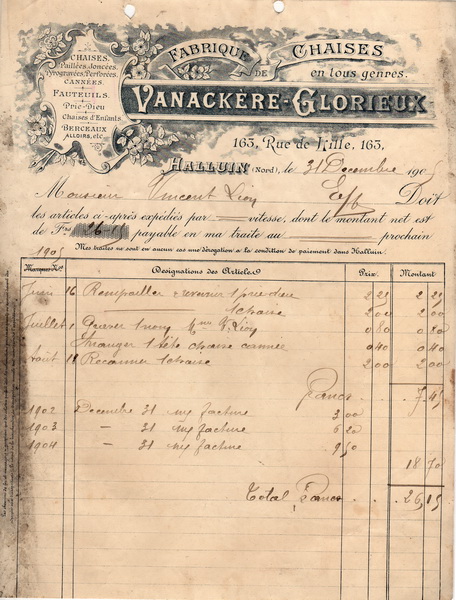 FABRIQUE DE CHAISES
en tous genres.
CHAISES,
Paillées, Joncées,
Pyrogravées, Perforées,
CANNÉES.
FAUTEUILS.
Prie-Dieu
Chaises d'Enfants.
BERCEAUX
ALLOIRS, etc.
VANACKÈRE-GLORIEUX
163, Rue de Lille, 163,
HALLUIN (Nord), le 31 Decembre 1905
Monsieur Vincent Lion Doit
les articles ci-après expédiés par vitesse, dont le montant net est
de Frs 26-15 payable en ma traite au prochain
Mes traites ne sont en aucun cas une dérogation à la condition de paiement dans Halluin.
1905
Marques & Nos Designations des Articles Prix Montant
Juin 16 Rempailler 1 prie dieu 2 25 2 25
1 chaise 2 00 2 00
Juillet 1 1 Mme V. Lion 0 80 0 80
1 tête chaise cannée 0 40 0 40
Aout 18 Recanner 1 chaise 2 00 2 00
Francs 7.45
1902 Decembre 31 ma facture 3 00
1903 - 31 ma facture 6 20
1904 - 31 ma facture 9 50
18 70
Total Francs 26,15